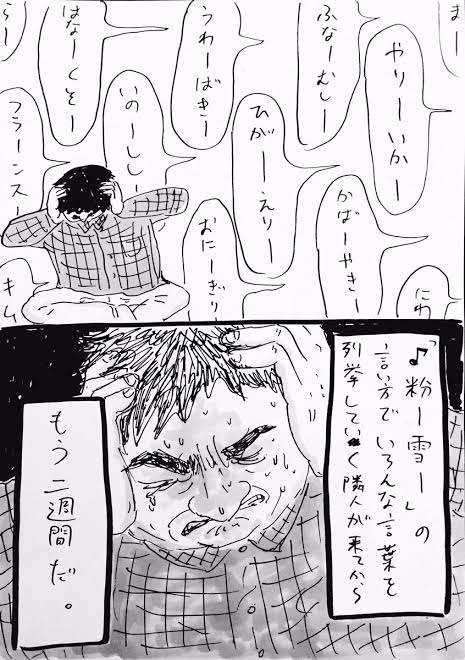 まー
やりーいかー
ふなーむしー
うわーばきー
はなーくそー
らー
ひがーえりー
いのーししー
フラーンスー
かばーやきー
おにーぎりー
にわ
キム
「♪粉ー雪ー」の
言い方でいろんな言葉を
列挙していく隣人が来てから
もう二週間だ。